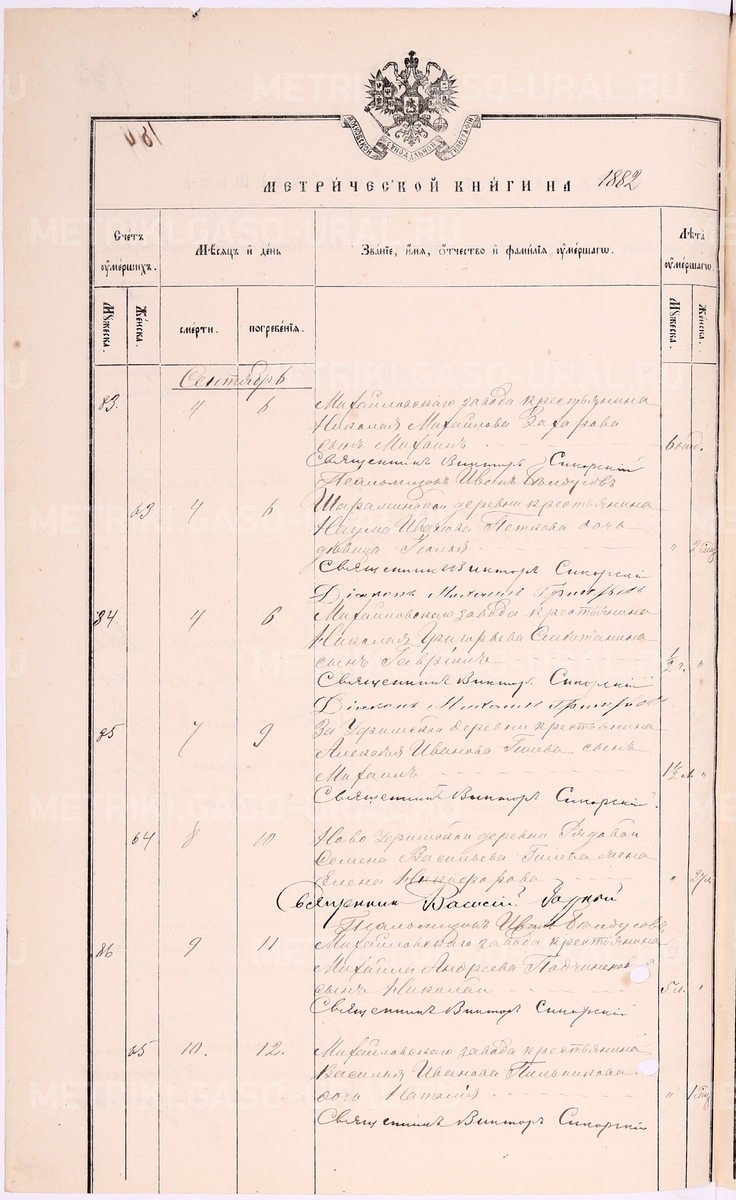 МЕТРИ́ЧЕСКОЙ КНИ́ГИ НА 1882
Счетъ ѹмершихъ.
Мѣсяцъ и день
Званіе, имя, отчество и фамилія ѹмершагѡ.
Лѣта ѹмершагѡ.
Мꙋжеска.
Женска.
смерти.
погребенія.
Мꙋжеска.
Женска.
Сентябрь
83. 4 6 Михайловскаго завода крестьянина
Николая Михайлова Захарова
сынъ Михаилъ 6 нед.
Священникъ Викторъ Сикорскій
Псаломщикъ Иванъ
63 4 6 Шараминской деревни крестьянина
Наума Иванова Петкова дочь
дѣвица " 2
Священникъ Викторъ Сикорскій
Діаконъ
84. 4 6 Михайловскаго завода крестьянина
Николая Григорьева
сынъ Гавріилъ ½ г. "
Священникъ Викторъ Сикорскій
Діаконъ
85 7 9 деревни крестьянина
Алексѣя Иванова Гилева сынъ
Михаилъ 1½ л. "
Священникъ Викторъ Сикорскій.
64 8 10 Ново деревни Рядовой
Семена Васильева Гилева жена
Елена Никифорова " 27 л.
Священник Василій
Псаломщикъ Иван
86 9 11 Михайловскаго завода крестьянина
Михаила Андреева Подчиненова
сынъ Николай 5 л. "
Священникъ Викторъ Сикорскій
65 10. 12. Михайловскаго завода крестьянина
Василья Иванова Пильникова
дочь Наталія " 1
Священникъ Викторъ Сикорскій
METRIKI.GASO-URAL.RU